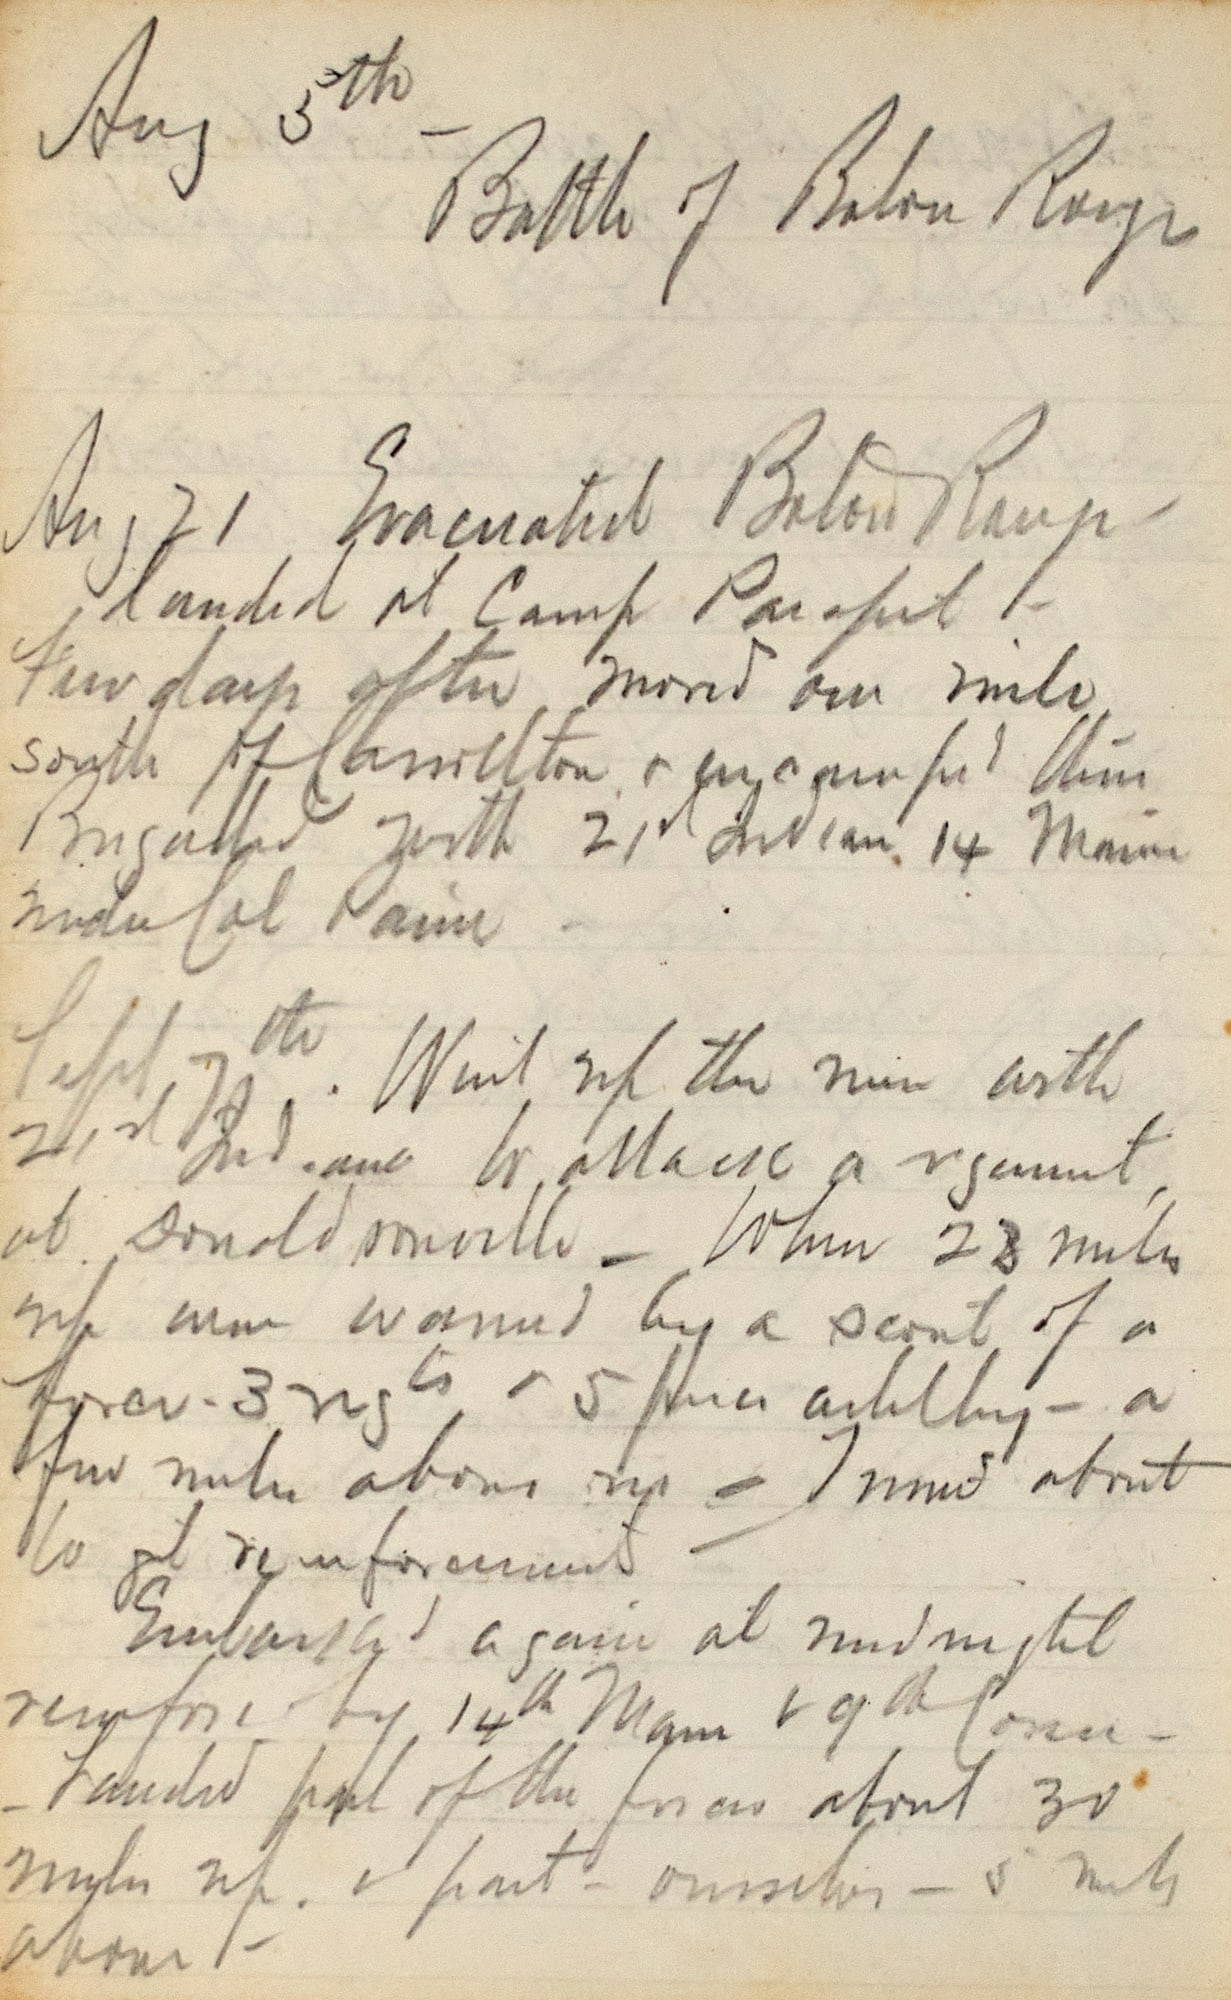 Aug 5th –
Battle of Baton Rouge
Aug 21 Evacuated Baton Rouge –
landed at Camp Parapet –
few days after moved one mile
south of Carrollton & encamped then
Brigaded with 21st Indiana 14 Maine
under Col Paine –
Sept 7th. Went up the river with
21st Indiana to attack a regiment,
at Donaldsonville – When 28 miles
up were warned by a scout of a
force – 3 regts & 5 pieces artillery – a
few miles above us – Turned about
to get reinforcements –
Embarked again at midnight
reinforced by 14th Maine & 9th Conn –
– Landed part of the forces about 30
miles up. & part – ourselves – 5 miles
above –